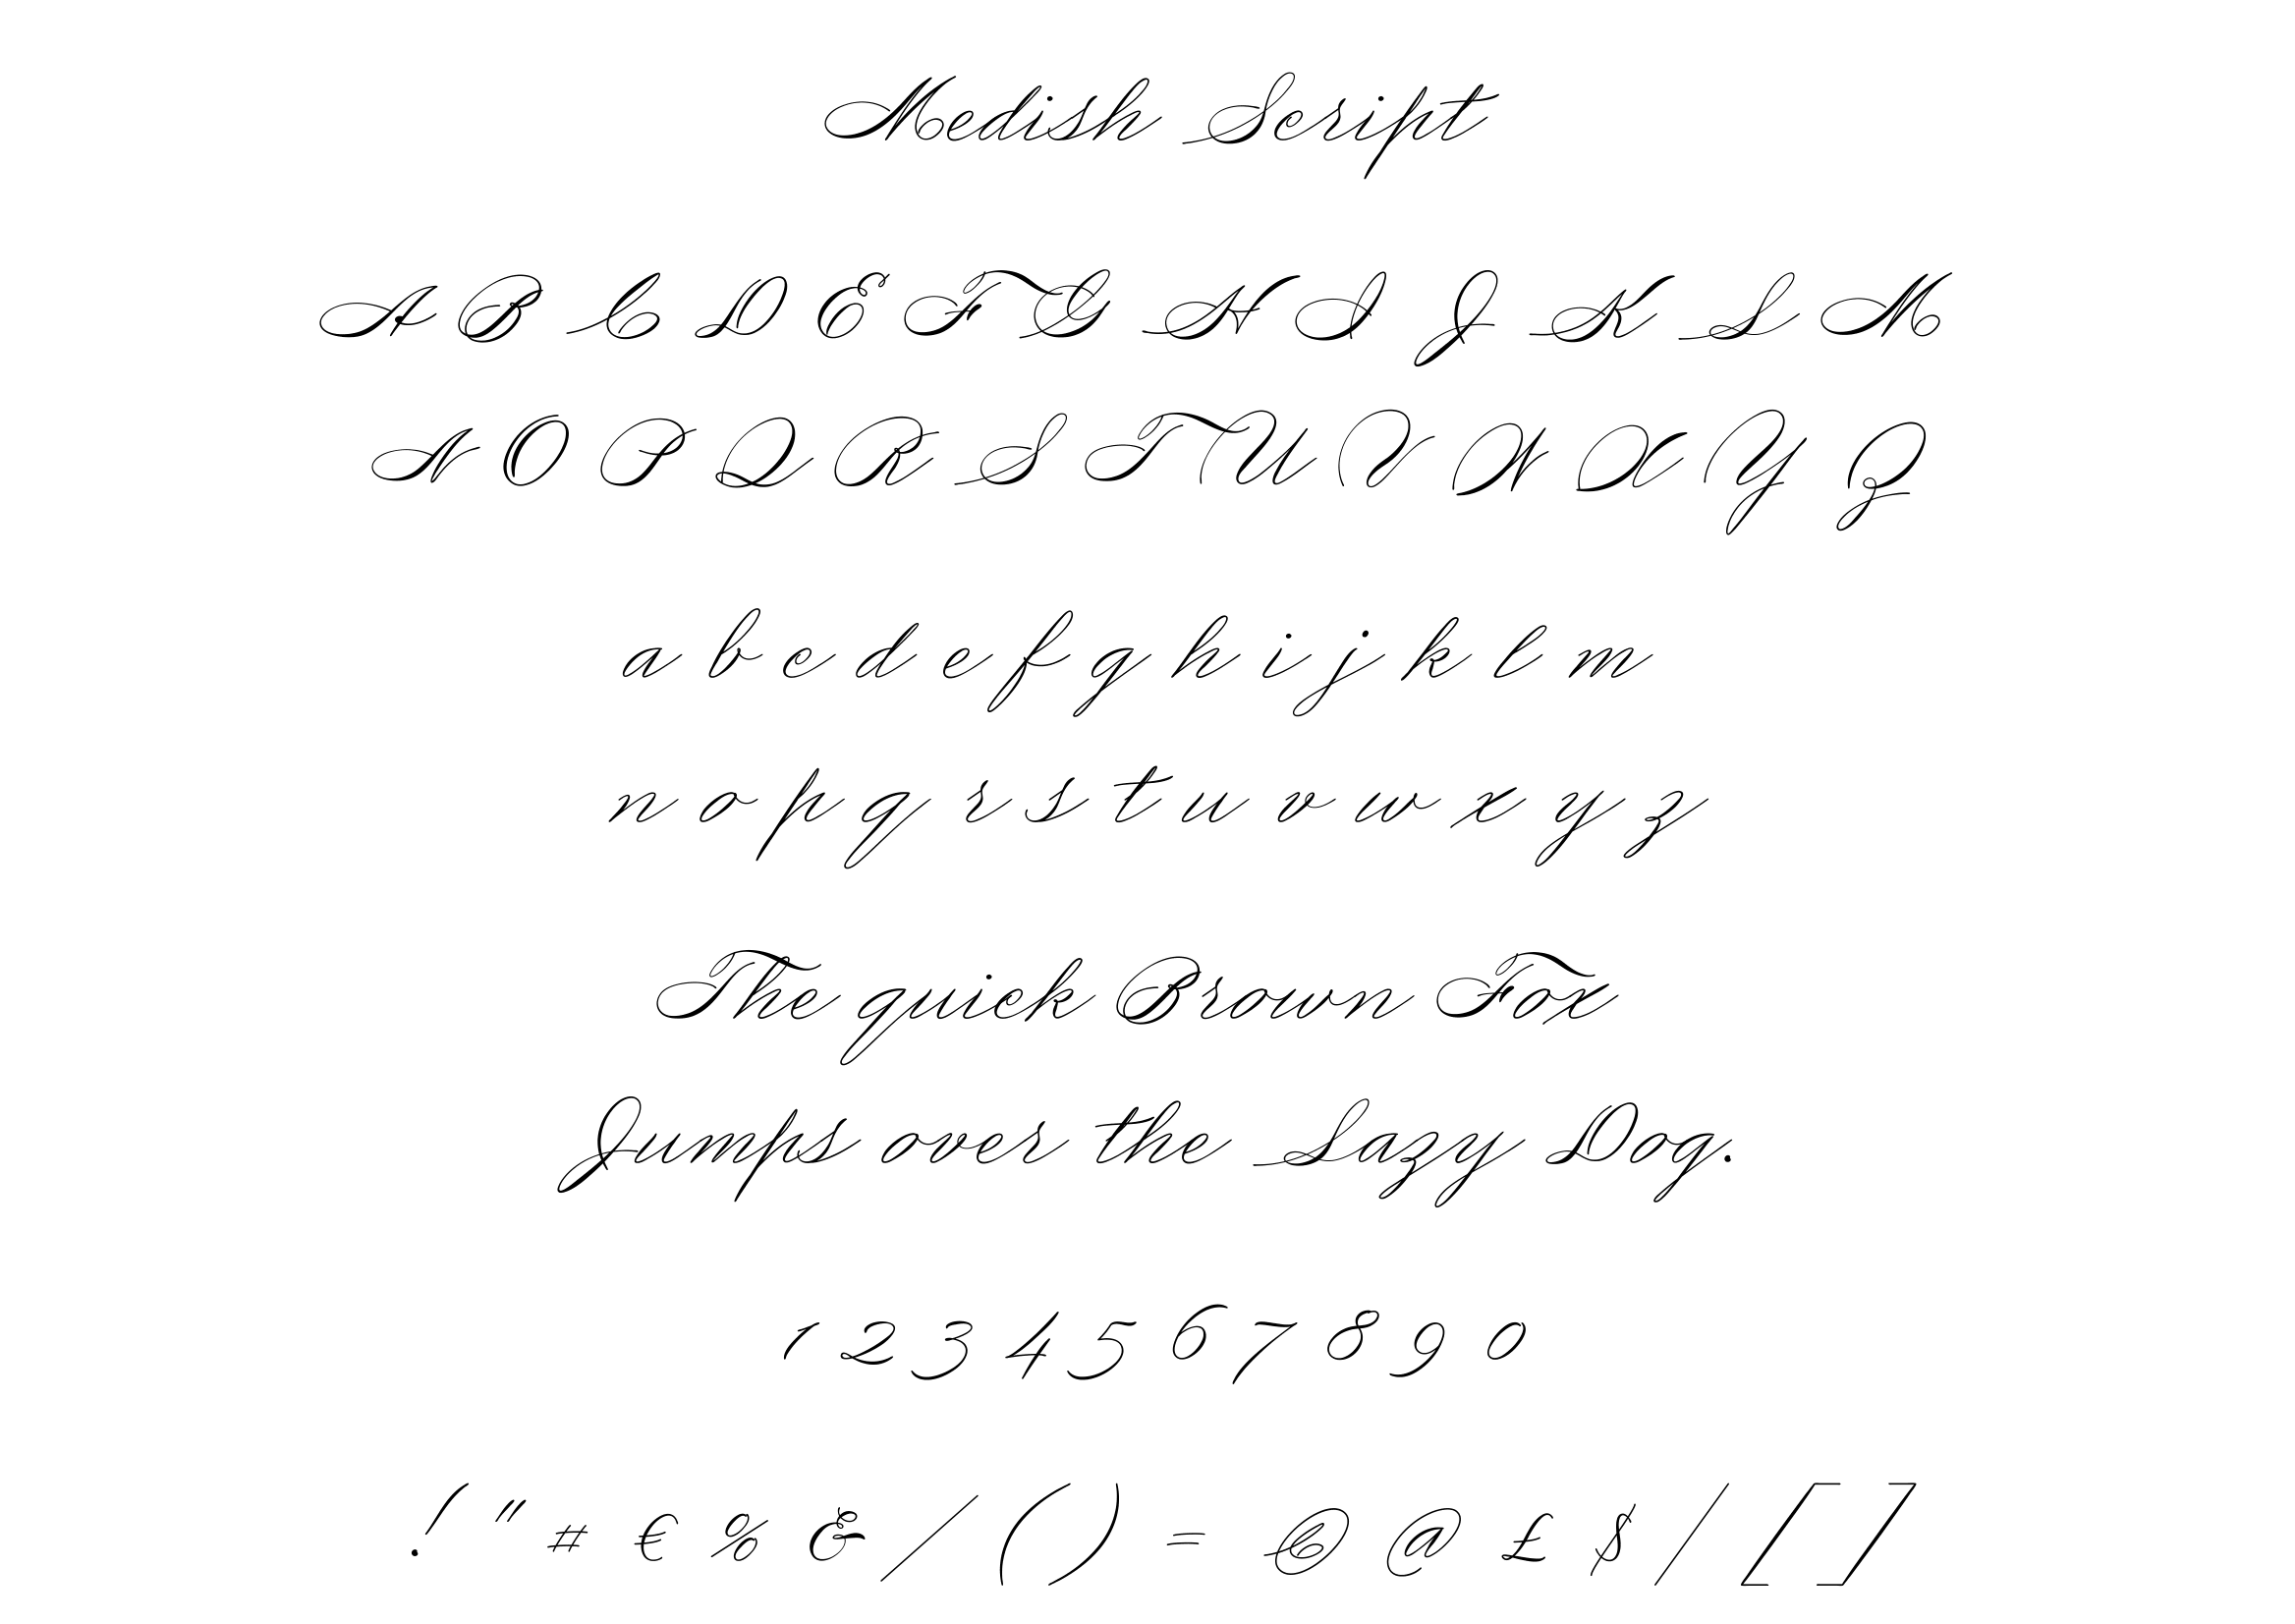 Modish Script
A B C D E F G H I J K L M
N O P Q R S T U V W X Y Z
a b c d e f g h i j k l m
n o p q r s t u v w x y z
The quick Brown Fox
Jumps over the Lazy Dog.
1 2 3 4 5 6 7 8 9 0
! " # € % & / ( ) = © @ £ $ | [ ]